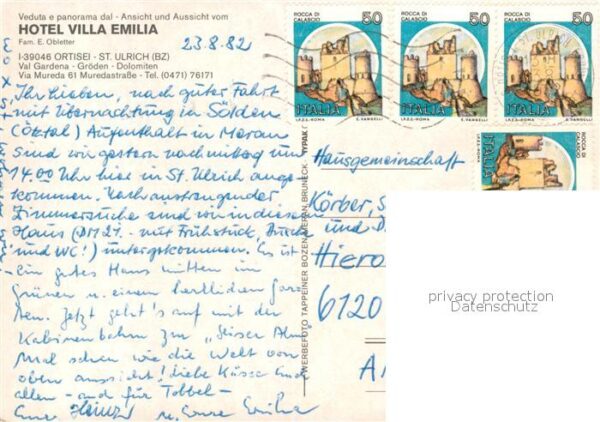 Veduta e panorama dal - Ansicht und Aussicht vom
HOTEL VILLA EMILIA
Fam. E. Obletter
I-39046 ORTISEI - ST. ULRICH (BZ)
Val Gardena - Gröden - Dolomiten
Via Mureda 61 Muredastraße - Tel. (0471) 76171
23.8.82
Ihr Lieben, nach guter Fahrt
mit Übernachtung in Sölden
(Ötztal) Aufenthalt in Meran
sind wir gestern nachmittag um
14.00 Uhr hier in St. Ulrich ange-
kommen. Nach anstrengender
Zimmersuche sind wir in diesem
Haus (DM 21.- mit Frühstück, Dusche
und WC!) untergekommen. Es ist
ein gutes Haus mitten im
Grünen u. einem herrlichen Gar-
ten. Jetzt geht's auf mit der
Kabinenbahn zur "Seiser Alm"
Mal sehen wie die Welt von
oben aussieht! Liebe Küsse Euch
allen - und für
Eure Heinz u. Eure
ROCCA DI
CALASCIO
50
ITALIA
I.P.Z.S.-ROMA E. VANGELLI
ROCCA DI
CALASCIO
50
ITALIA
I.P.Z.S.-ROMA E. VANGELLI
ROCCA DI
CALASCIO
50
ITALIA
I.P.Z.S.-ROMA E. VANGELLI
ROCCA DI
CALASCIO
ITALIA
WERBEFOTO TAPPEINER BOZEN MERAN BRUNECK TYPAK
Hausgemeinschaft
Körber, S
und D
Hiero
6120
privacy protection
Datenschutz